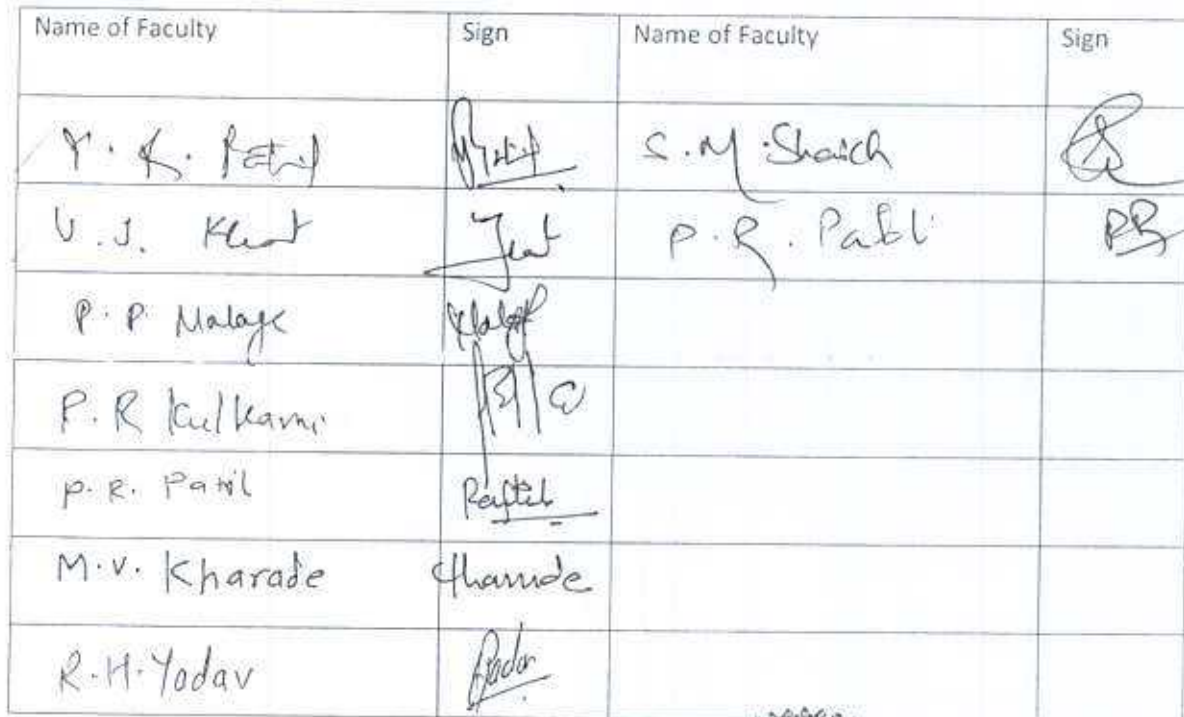 Name of Faculty Sign Name of Faculty Sign
Y. K. Patil Patil S.M. Shaikh
V. J. Khot P. R. Patil PR
P. P. Malage Malage
P. R Kulkarni
P. R. Patil Patil
M. V. Kharade Kharade
R. H. Yadav Yadav